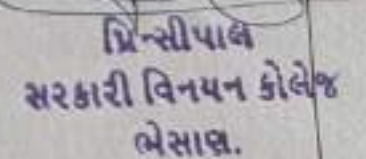 પ્રિન્સીપાલ
સરકારી વિનયન કોલેજ
ભેસાણ.